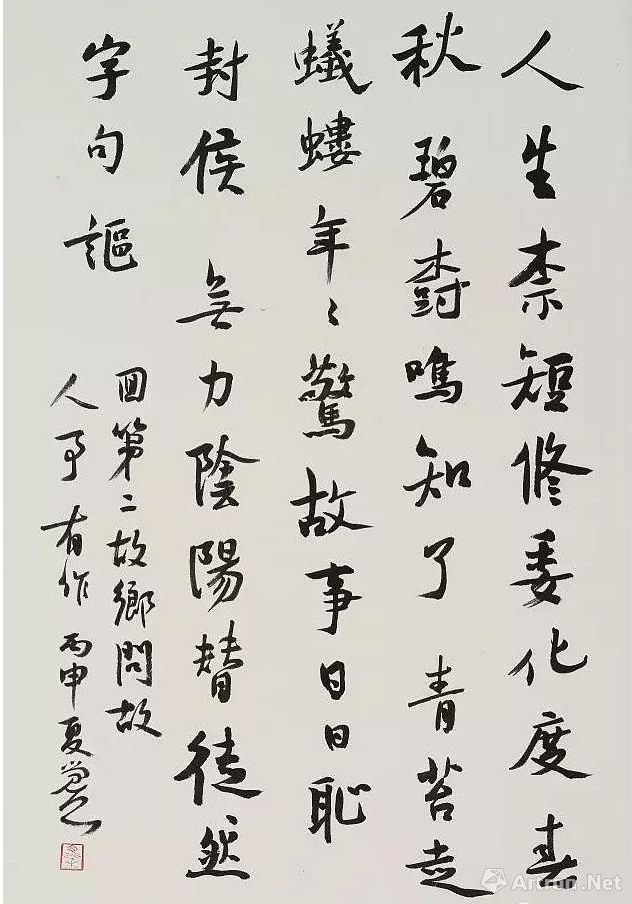 人生柰短修委化度春
秋 碧樹鳴知了 青苔走
蟻螻年〻驚故事日日恥
封侯 無力陰陽替徒然
字句謳
回第二故鄉問故
人事有作 丙申夏
Artron.Net